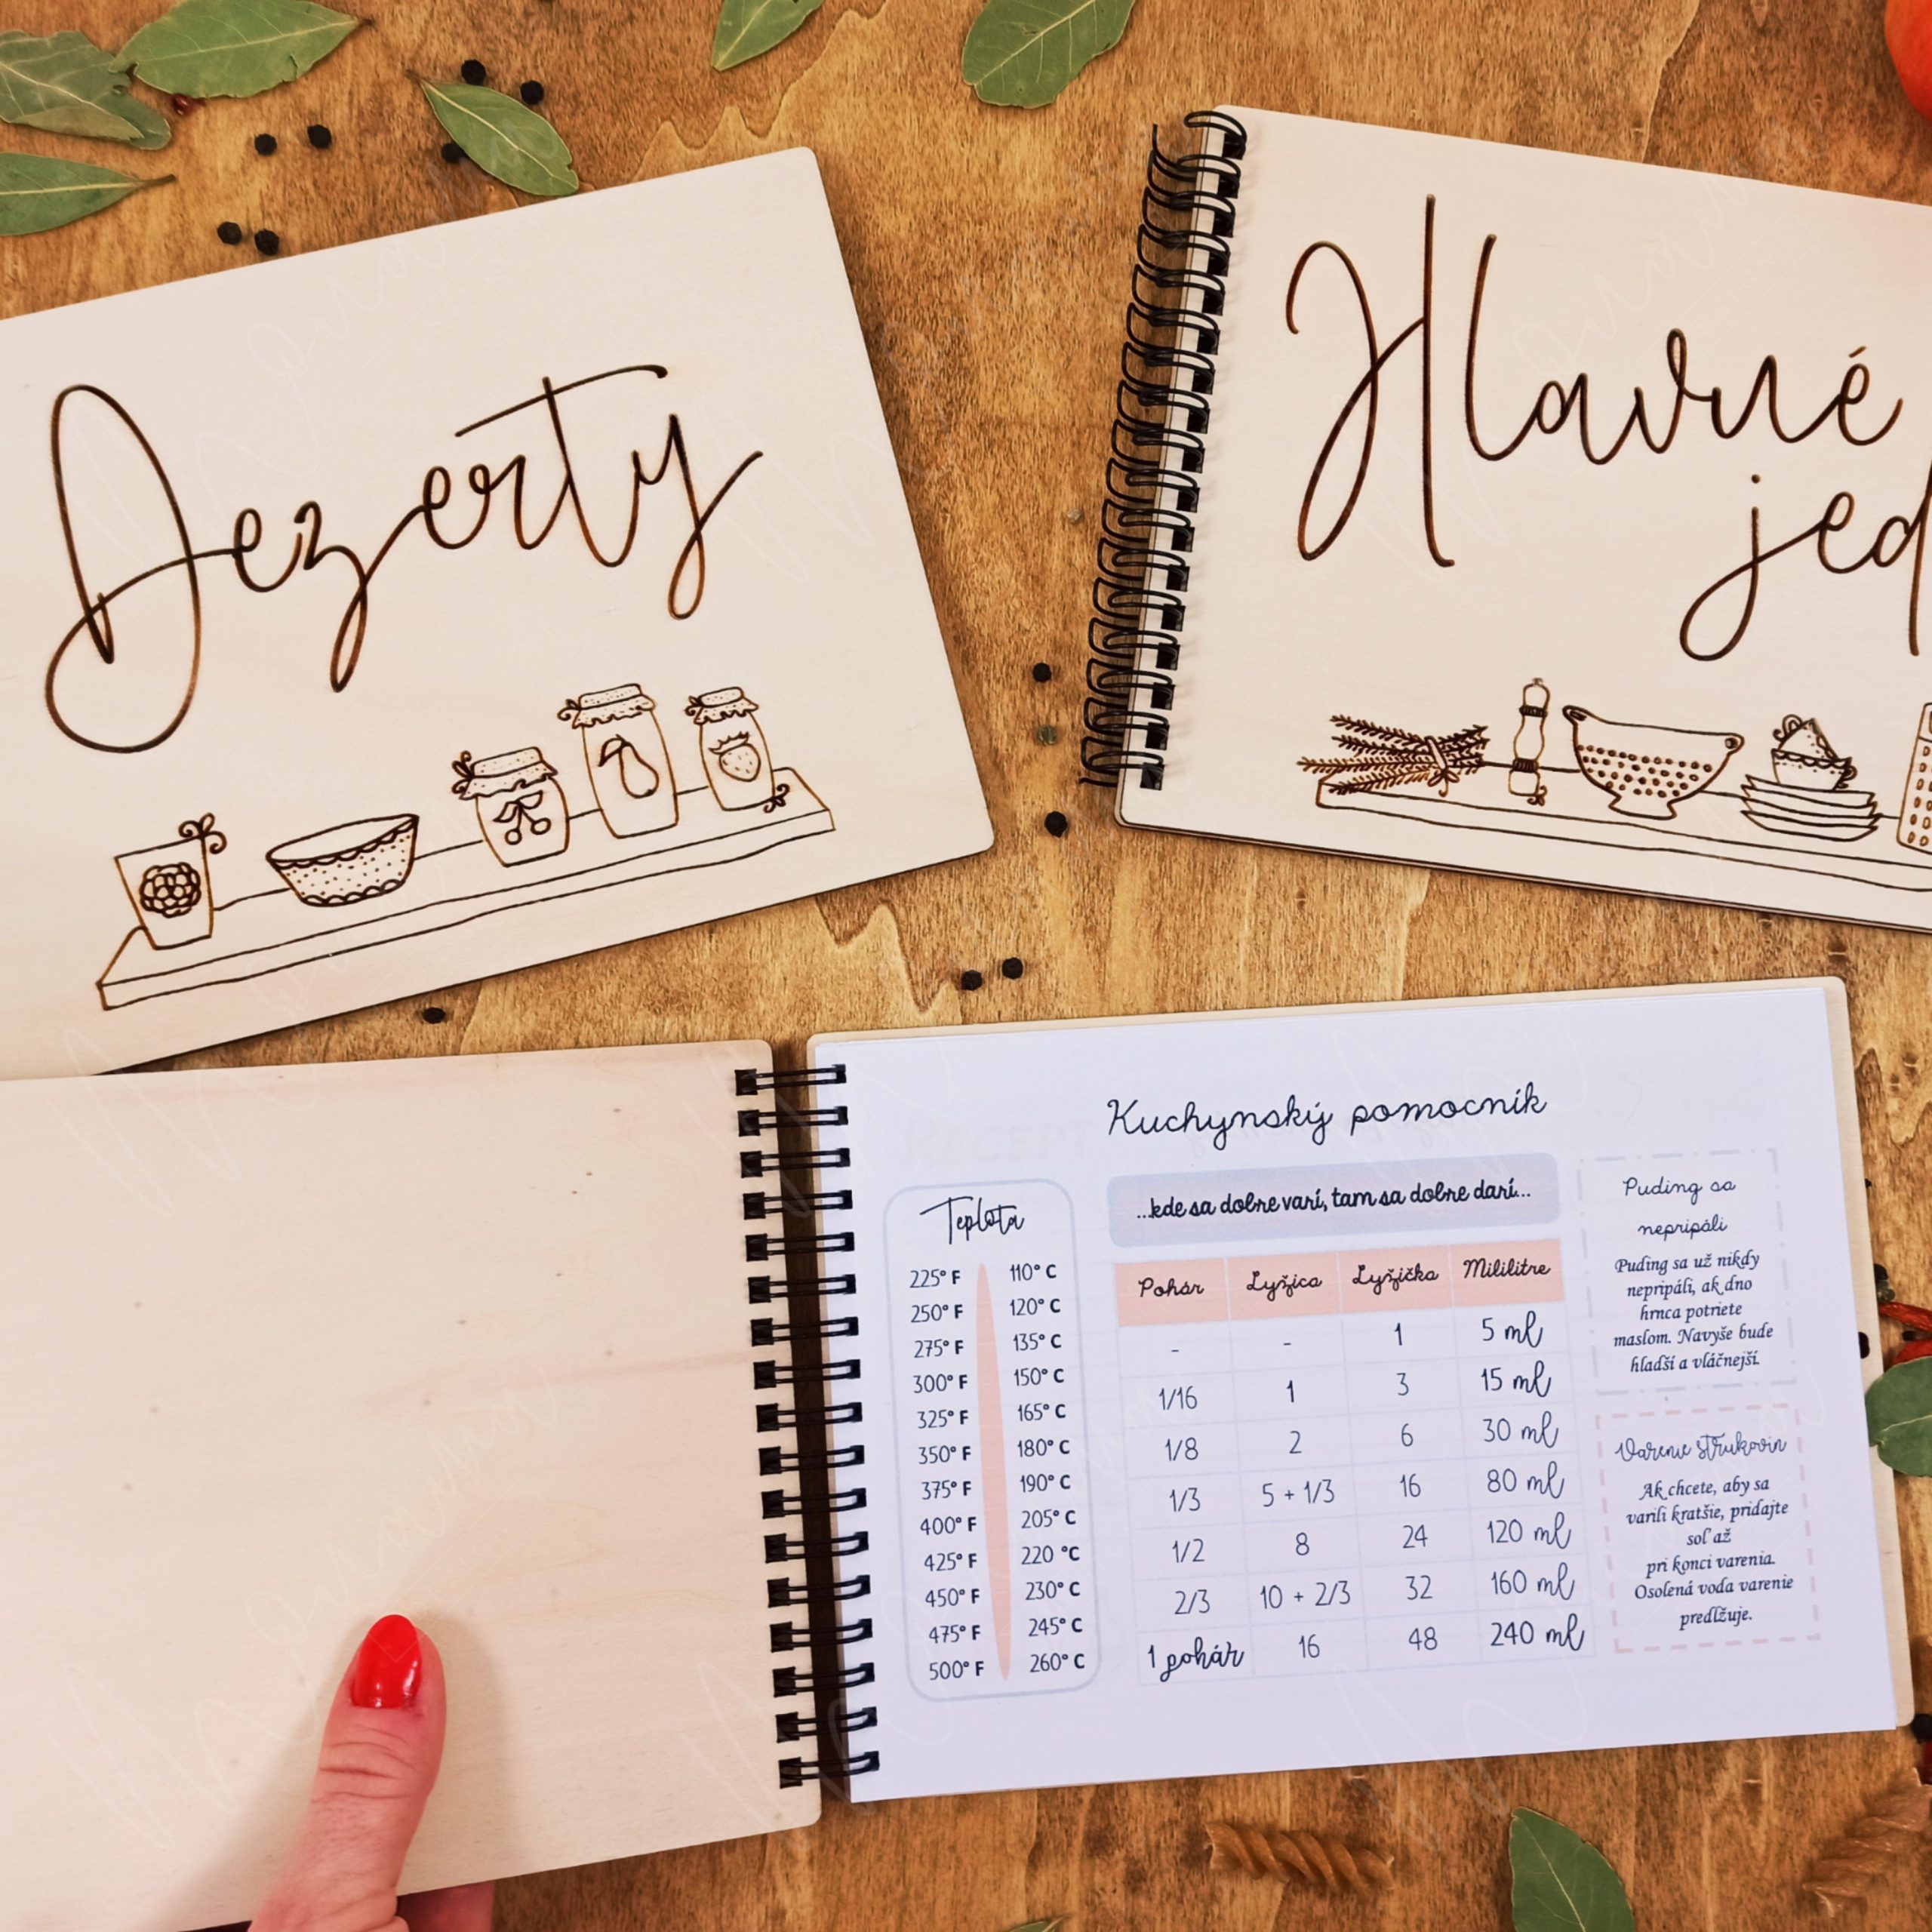 Dezerty
Hlavné
jed
Kuchynský pomocník
...kde sa dobre varí, tam sa dobre darí...
Teplota
225° F 110° C
250° F 120° C
275° F 135° C
300° F 150° C
325° F 165° C
350° F 180° C
375° F 190° C
400° F 205° C
425° F 220 °C
450° F 230° C
475° F 245° C
500° F 260° C
Pohár Lyžica Lyžička Mililitre
- - 1 5 ml
1/16 1 3 15 ml
1/8 2 6 30 ml
1/3 5 + 1/3 16 80 ml
1/2 8 24 120 ml
2/3 10 + 2/3 32 160 ml
1 pohár 16 48 240 ml
Puding sa
nepripáli
Puding sa už nikdy
nepripáli, ak dno
hrnca potriete
maslom. Navyše bude
hladší a vláčnejší.
Varenie strukovín
Ak chcete, aby sa
varili kratšie, pridajte
soľ až
pri konci varenia.
Osolená voda varenie
predlžuje.